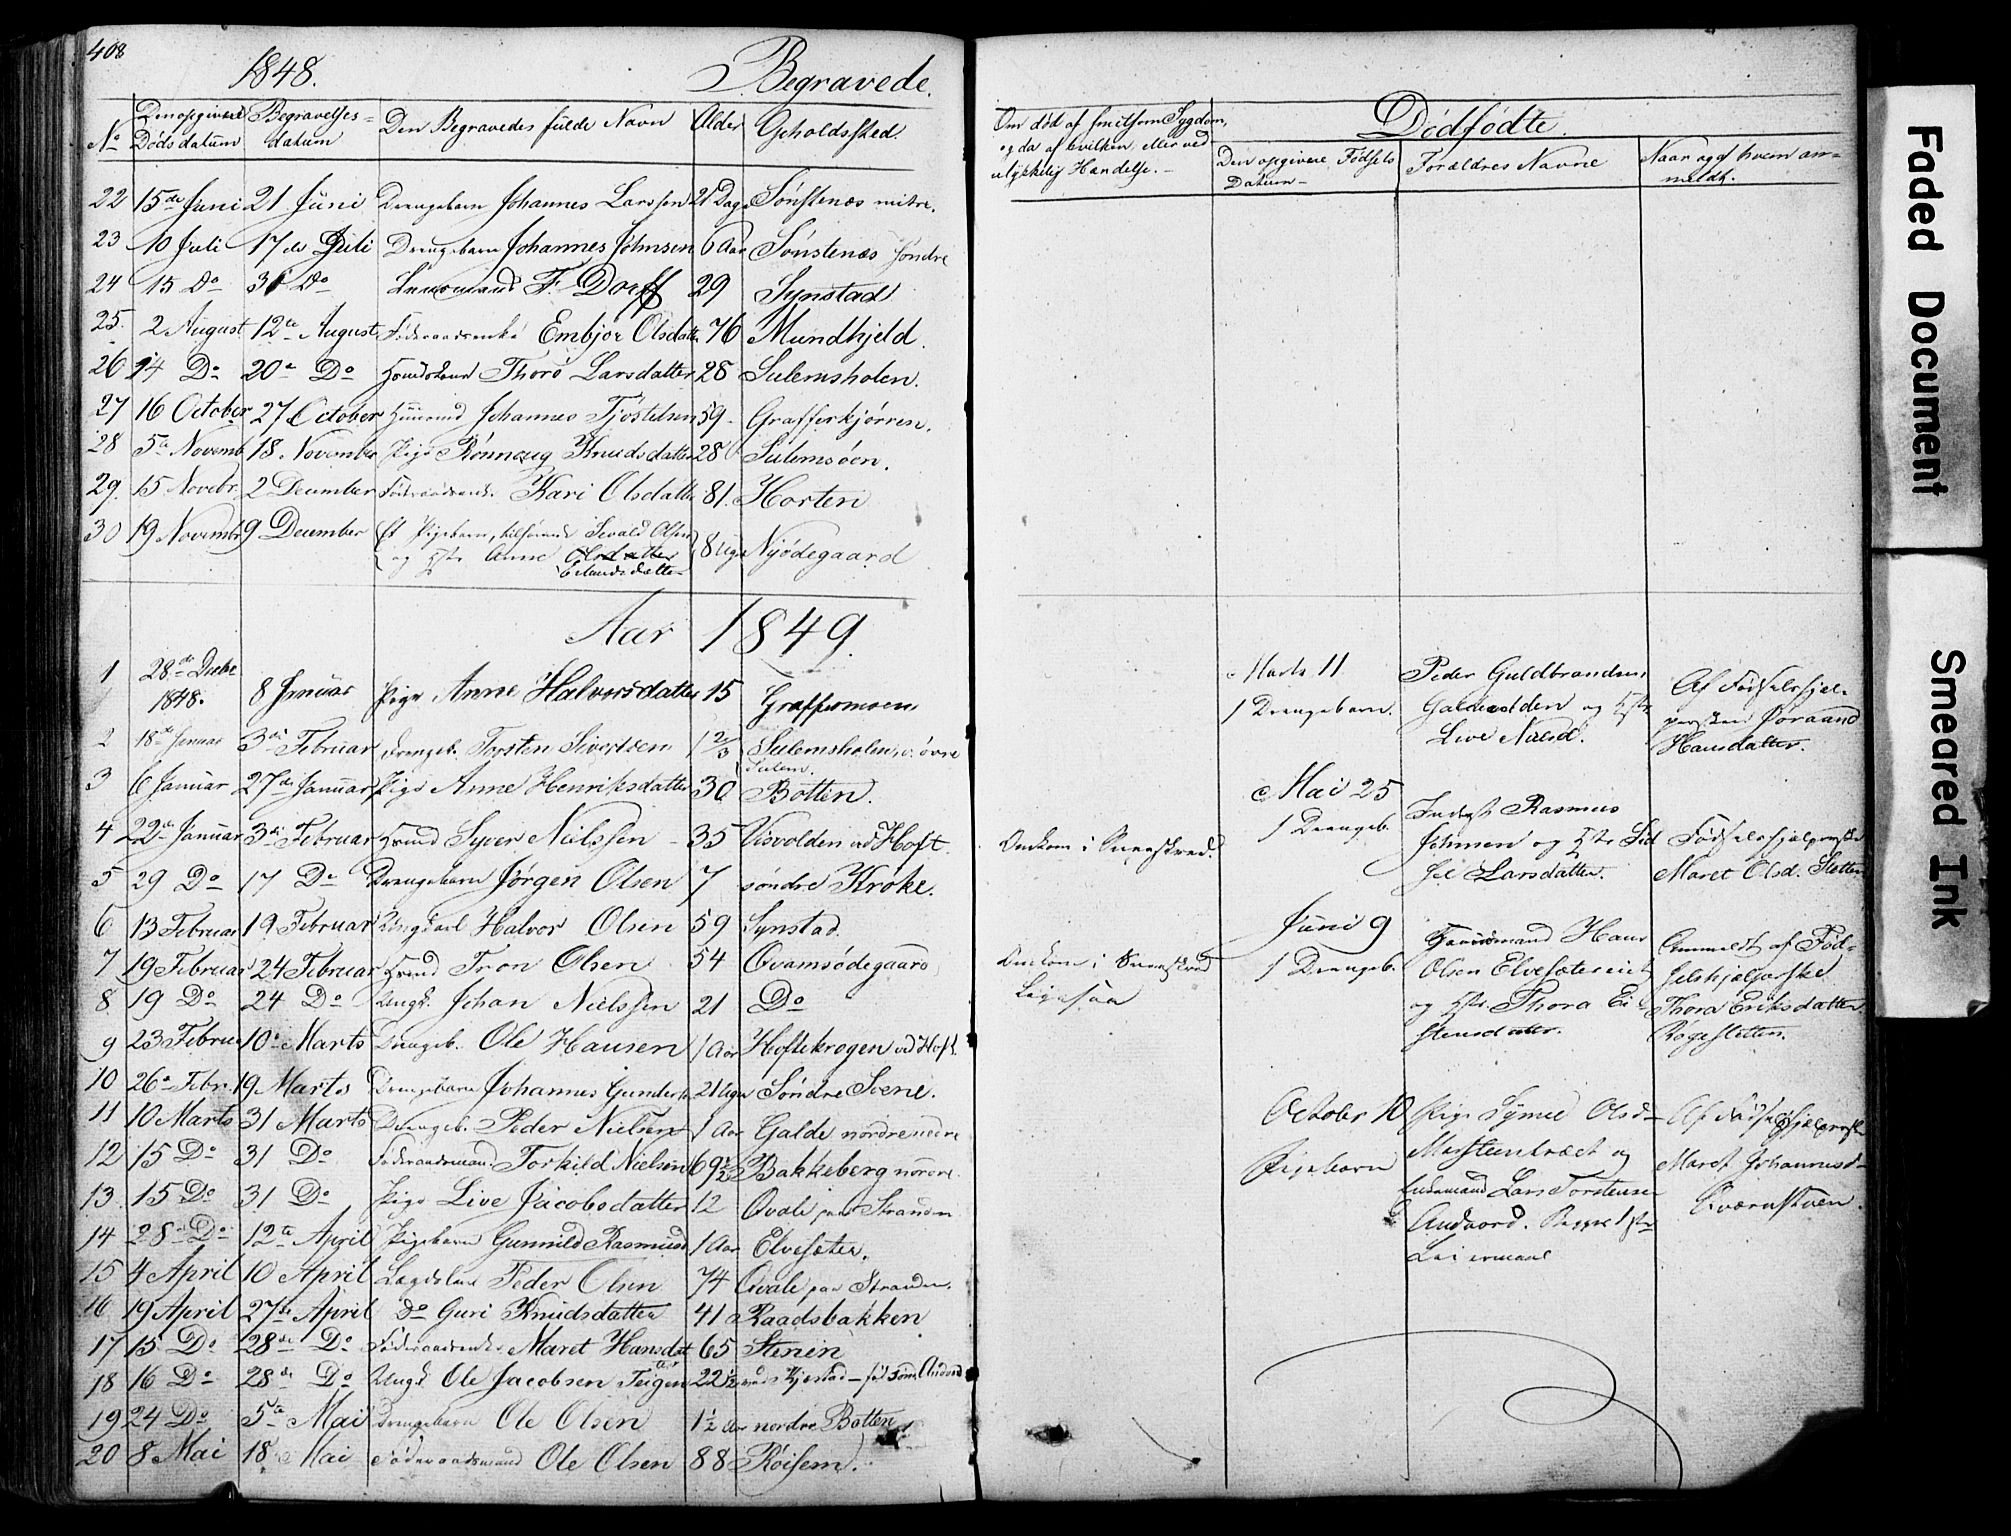 408
1848. Begravede.
No Den opgivne Dødsdatum Begravelses-datum Den Begravedes fulde Navn Alder Opholdssted.
22 15de Juni 21 Juni Drengebarn Johannes Larssen 21 Dage Sønstenæs mitre.
23 10 Juli 17de Juli Drengebarn Johannes Johnsen 6 Aar Sønstenæs søndre
24 15 Do 31 Do F. Dorff 29 Synstad
25. 2 August 12te August Føderaadsenke Embjør Olsdatter 76 Mundhjeld.
26 14 Do 20de Do Thorø Larsdatter 28 Sulemsholen.
27 16 October 27 October Huusmd Johannes Tjøstelsen 59. Grafferkjørren.
28 5te Novemb 18. November Pige Rønnaug Knudsdatter 28 Sulemsøen.
29. 15 Novebr. 2 December Føderaadsenke Kari Olsdatter 81. Horten
30 19 Novembr 9 December Et Pigebarn, tilhørende Sivald Olsen
og Hstr Anne Olsdatter 8 Uger Nyødegaard
Erlandsdatter
Aar 1849.
1 28de Decbr
1848. 8 Januar Pige Anne Halvorsdatter 15 Graffermoen
2 18de Januar 3die Februar Drengeb. Torsten Sivertsen 1 2/3 Sulemsholen, v. øvre
Sulem.
3 6 Januar 27de Januar Pige Anne Henriksdatter 30 Botten.
4 22de Januar 3die Februar Huusmd Syver Nielssen 35 Visvolden ved Hoft.
5 29 Do 17 Do Drengebarn Jørgen Olsen 7 søndre Kroke.
6 13 Februar 19 Februar Ungkarl Halvor Olsen 59 Synstad.
7 19 Februar 24 Februar Huusmd Tron Olsen 54 Qvamsødegaard
8 19 Do 24 Do Ungk. Johan Nielssen 21 Do
9 23 Februar 10de Marts Drengeb. Ole Hansen 1 Aar Hoftekrogen ved Hoft.
10 26de Febr. 19 Marts Drengebarn Johannes Gunders 21 Uger Søndre Svene.
11 10 Marts 31 Marts Drengeb. Peder Nielsen 1 Aar Galde nordre nedre
12 15 Do 31 Do Føderaadsmand Torkild Nielsen 69 1/2 Bakkeberg nordre
13. 15 Do 31 Do Pige Live Jacobsdatter 12 Qvale paa Stranden
14 28de Do 12te April Pigebarn Gunnild Rasmusd 1 Aar Elvesæter.
15 4 April 10 April Lægdslem Peder Olsen 74 Qvale paa Stranden.
16 19 April 27de April Do Guri Knudsdatter 41 Raadsbakken
17 15 Do 28de Do Føderaadsenke Maret Hansdatter 65 Stenin
18 16 Do 28de Do Ungk. Ole Jacobsen Teigen 22 1/2
19 24 Do 5te Mai Drengebarn Ole Olsen 1 1/2 Aar nordre Botten
20 8 Mai 18 Mai Føderaadsmand Ole Olsen 88 Røisem.
Om død af smitsom Sygdom,
og da af hvilken, eller ved
ulykkelig Hændelse.
Dødfødte.
Den opgivne Fødsels
Datum
Forældres Navne
Naar og af hvem an-
meldt.
Marts 11
1 Drengebarn.
Peder Guldbrandsen
og Hstr
Live Nielsd.
Af Fødselshjel-
persken Jøraand
Hansdatter.
Mai 25
1 Drengeb.
Inderst Rasmus
Johnsen og Hstr Sid
sel Larsdatter.
Fødselshjelperske
Maret Olsd. Sletten
Omkom i Sneeskred.
Juni 9
1 Drengeb.
Hans
Olsen Elvesætereiet
og Hstr. Thora Ei-
stensdatter.
Anmeldt af Fød-
selshjelperske
Thora Eriksdatter
Omkom i Sneeskred
Ligesaa
October 10
Pigebarn
Pige Olsd-
og
Lars Torstensen
Andvord.
Af Fødselshjelperske
Maret Johannesd-
Qværnstuen.
Faded Document
Smeared Ink